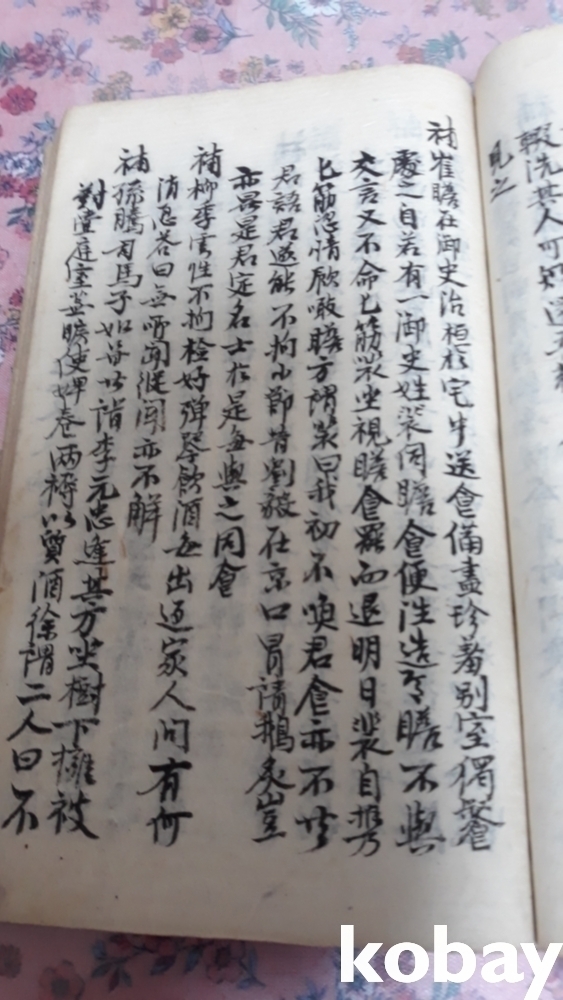 輟洗其人可知
見之
補崔瞻在御史治恒於宅中送食備盡珍羞別室獨飡
處之自若有一御史姓裴伺瞻食便往造焉瞻不與
交言又不命匕筯裴坐視瞻食罷而退明日裴自携
匕筯恣情飮噉瞻方謂裴曰我初不喚君食亦不共
君語君遂能不拘小節昔劉毅在京口冐請鵝炙豈
亦異是君定名士於是每與之同食
補柳季雲性不拘檢好彈琴飮酒每出返家人問有何
消息答曰無所聞縱聞亦不解
補孫騰司馬子如甞共詣李元忠逢其方坐樹下擁被
對壺庭室蕪曠使婢卷兩褥以質酒徐謂二人曰不
kobay